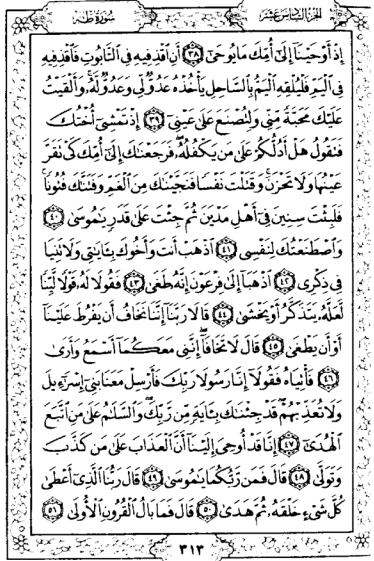 سُورَةُ طٰهٰ
الجزء السادس عشر
إِذْ أَوْحَيْنَآ إِلَىٰٓ أُمِّكَ مَا يُوحَىٰٓ ٣٨ أَنِ ٱقْذِفِيهِ فِى ٱلتَّابُوتِ فَٱقْذِفِيهِ
فِى ٱلْيَمِّ فَلْيُلْقِهِ ٱلْيَمُّ بِٱلسَّاحِلِ يَأْخُذْهُ عَدُوٌّ لِّى وَعَدُوٌّ لَّهُۥ وَأَلْقَيْتُ
عَلَيْكَ مَحَبَّةً مِّنِّى وَلِتُصْنَعَ عَلَىٰ عَيْنِىٓ ٣٩ إِذْ تَمْشِىٓ أُخْتُكَ
فَتَقُولُ هَلْ أَدُلُّكُمْ عَلَىٰ مَن يَكْفُلُهُۥ فَرَجَعْنَٰكَ إِلَىٰٓ أُمِّكَ كَىْ تَقَرَّ
عَيْنُهَا وَلَا تَحْزَنَ وَقَتَلْتَ نَفْسًا فَنَجَّيْنَٰكَ مِنَ ٱلْغَمِّ وَفَتَنَّٰكَ فُتُونًا
فَلَبِثْتَ سِنِينَ فِىٓ أَهْلِ مَدْيَنَ ثُمَّ جِئْتَ عَلَىٰ قَدَرٍ يَٰمُوسَىٰ ٤٠
وَٱصْطَنَعْتُكَ لِنَفْسِى ٤١ ٱذْهَبْ أَنتَ وَأَخُوكَ بِـَٔايَٰتِى وَلَا تَنِيَا
فِى ذِكْرِى ٤٢ ٱذْهَبَآ إِلَىٰ فِرْعَوْنَ إِنَّهُۥ طَغَىٰ ٤٣ فَقُولَا لَهُۥ قَوْلًا لَّيِّنًا
لَّعَلَّهُۥ يَتَذَكَّرُ أَوْ يَخْشَىٰ ٤٤ قَالَا رَبَّنَآ إِنَّنَا نَخَافُ أَن يَفْرُطَ عَلَيْنَآ
أَوْ أَن يَطْغَىٰ ٤٥ قَالَ لَا تَخَافَآ إِنَّنِى مَعَكُمَآ أَسْمَعُ وَأَرَىٰ
٤٦ فَأْتِيَاهُ فَقُولَآ إِنَّا رَسُولَا رَبِّكَ فَأَرْسِلْ مَعَنَا بَنِىٓ إِسْرَٰٓءِيلَ
وَلَا تُعَذِّبْهُمْ قَدْ جِئْنَٰكَ بِـَٔايَةٍ مِّن رَّبِّكَ وَٱلسَّلَٰمُ عَلَىٰ مَنِ ٱتَّبَعَ
ٱلْهُدَىٰٓ ٤٧ إِنَّا قَدْ أُوحِىَ إِلَيْنَآ أَنَّ ٱلْعَذَابَ عَلَىٰ مَن كَذَّبَ
وَتَوَلَّىٰ ٤٨ قَالَ فَمَن رَّبُّكُمَا يَٰمُوسَىٰ ٤٩ قَالَ رَبُّنَا ٱلَّذِىٓ أَعْطَىٰ
كُلَّ شَىْءٍ خَلْقَهُۥ ثُمَّ هَدَىٰ ٥٠ قَالَ فَمَا بَالُ ٱلْقُرُونِ ٱلْأُولَىٰ ٥١
٣١٣